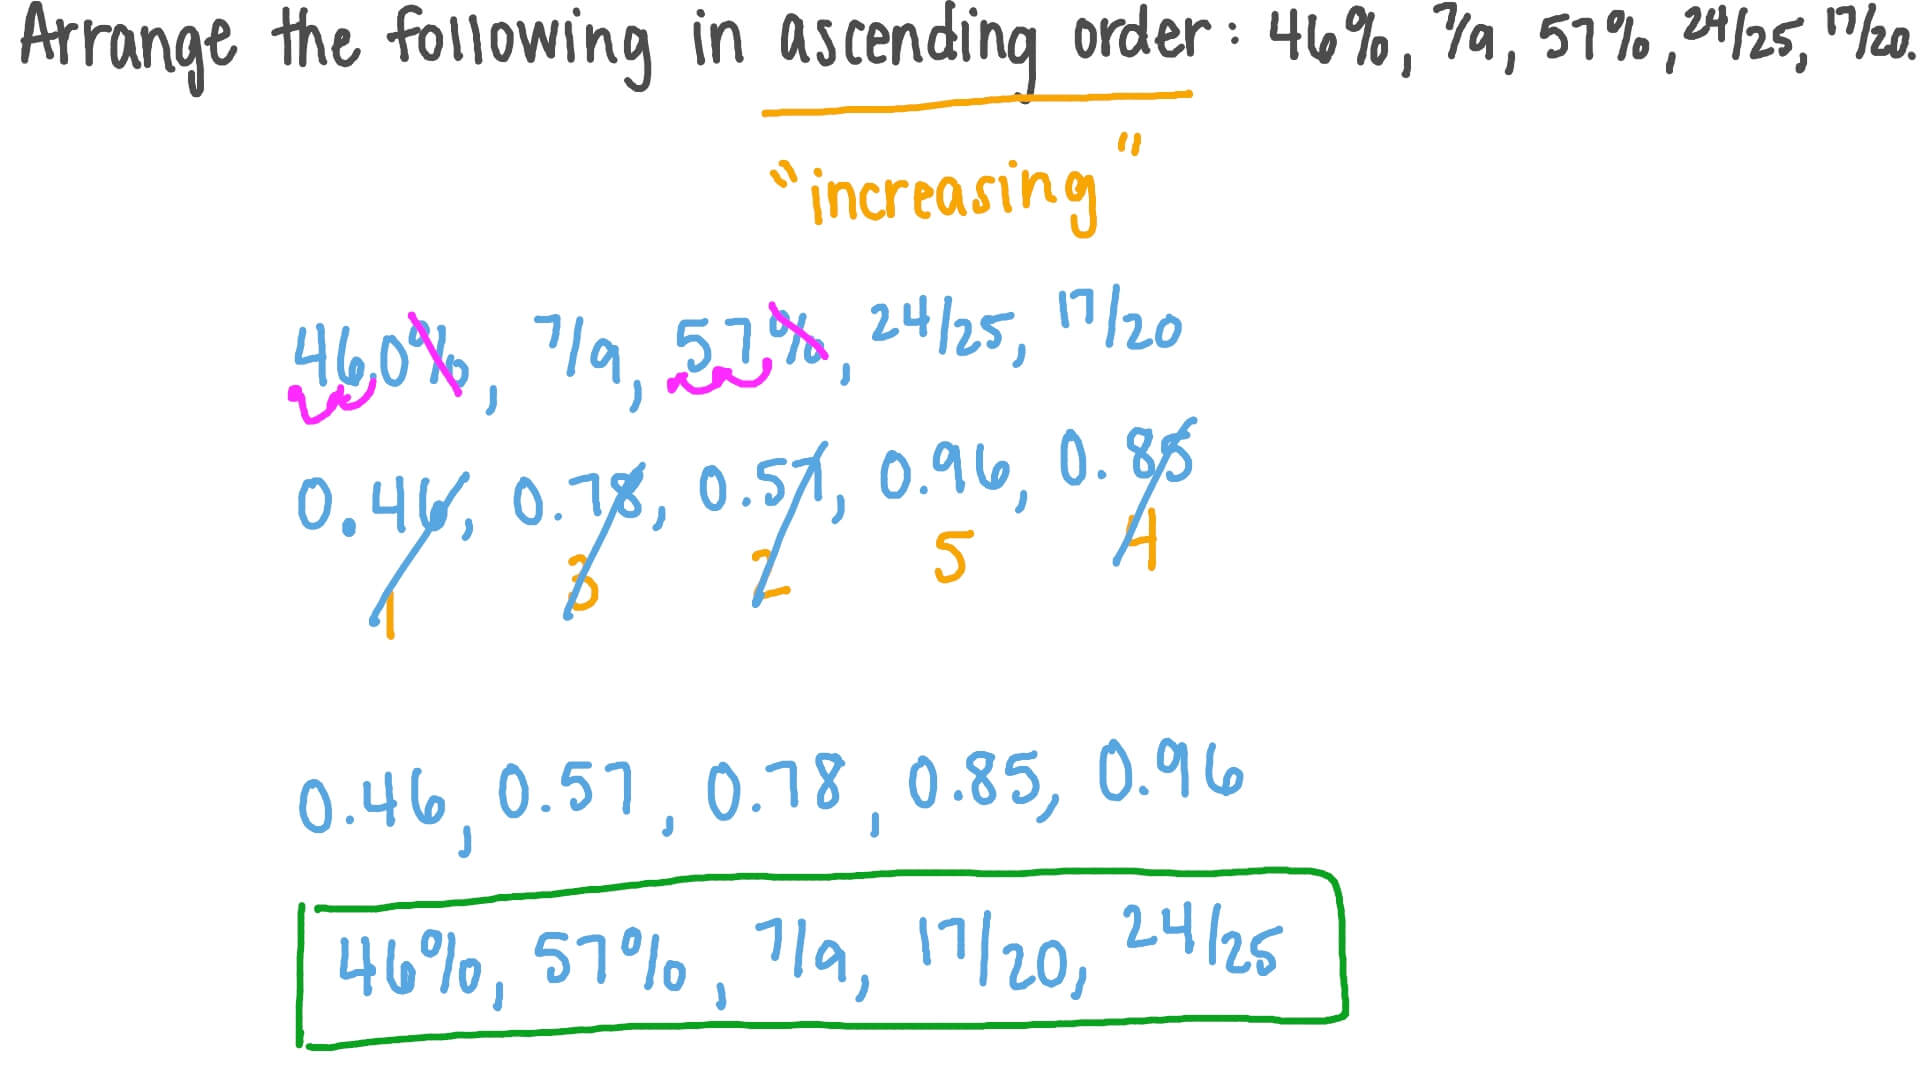 Arrange the following in ascending order: 46%, 7/9, 57%, 24/25, 17/20.
"increasing"
46.0%, 7/9, 57.%, 24/25, 17/20
0.46, 0.78, 0.57, 0.96, 0.85
1 3 2 5 4
0.46, 0.57, 0.78, 0.85, 0.96
46%, 57%, 7/9, 17/20, 24/25